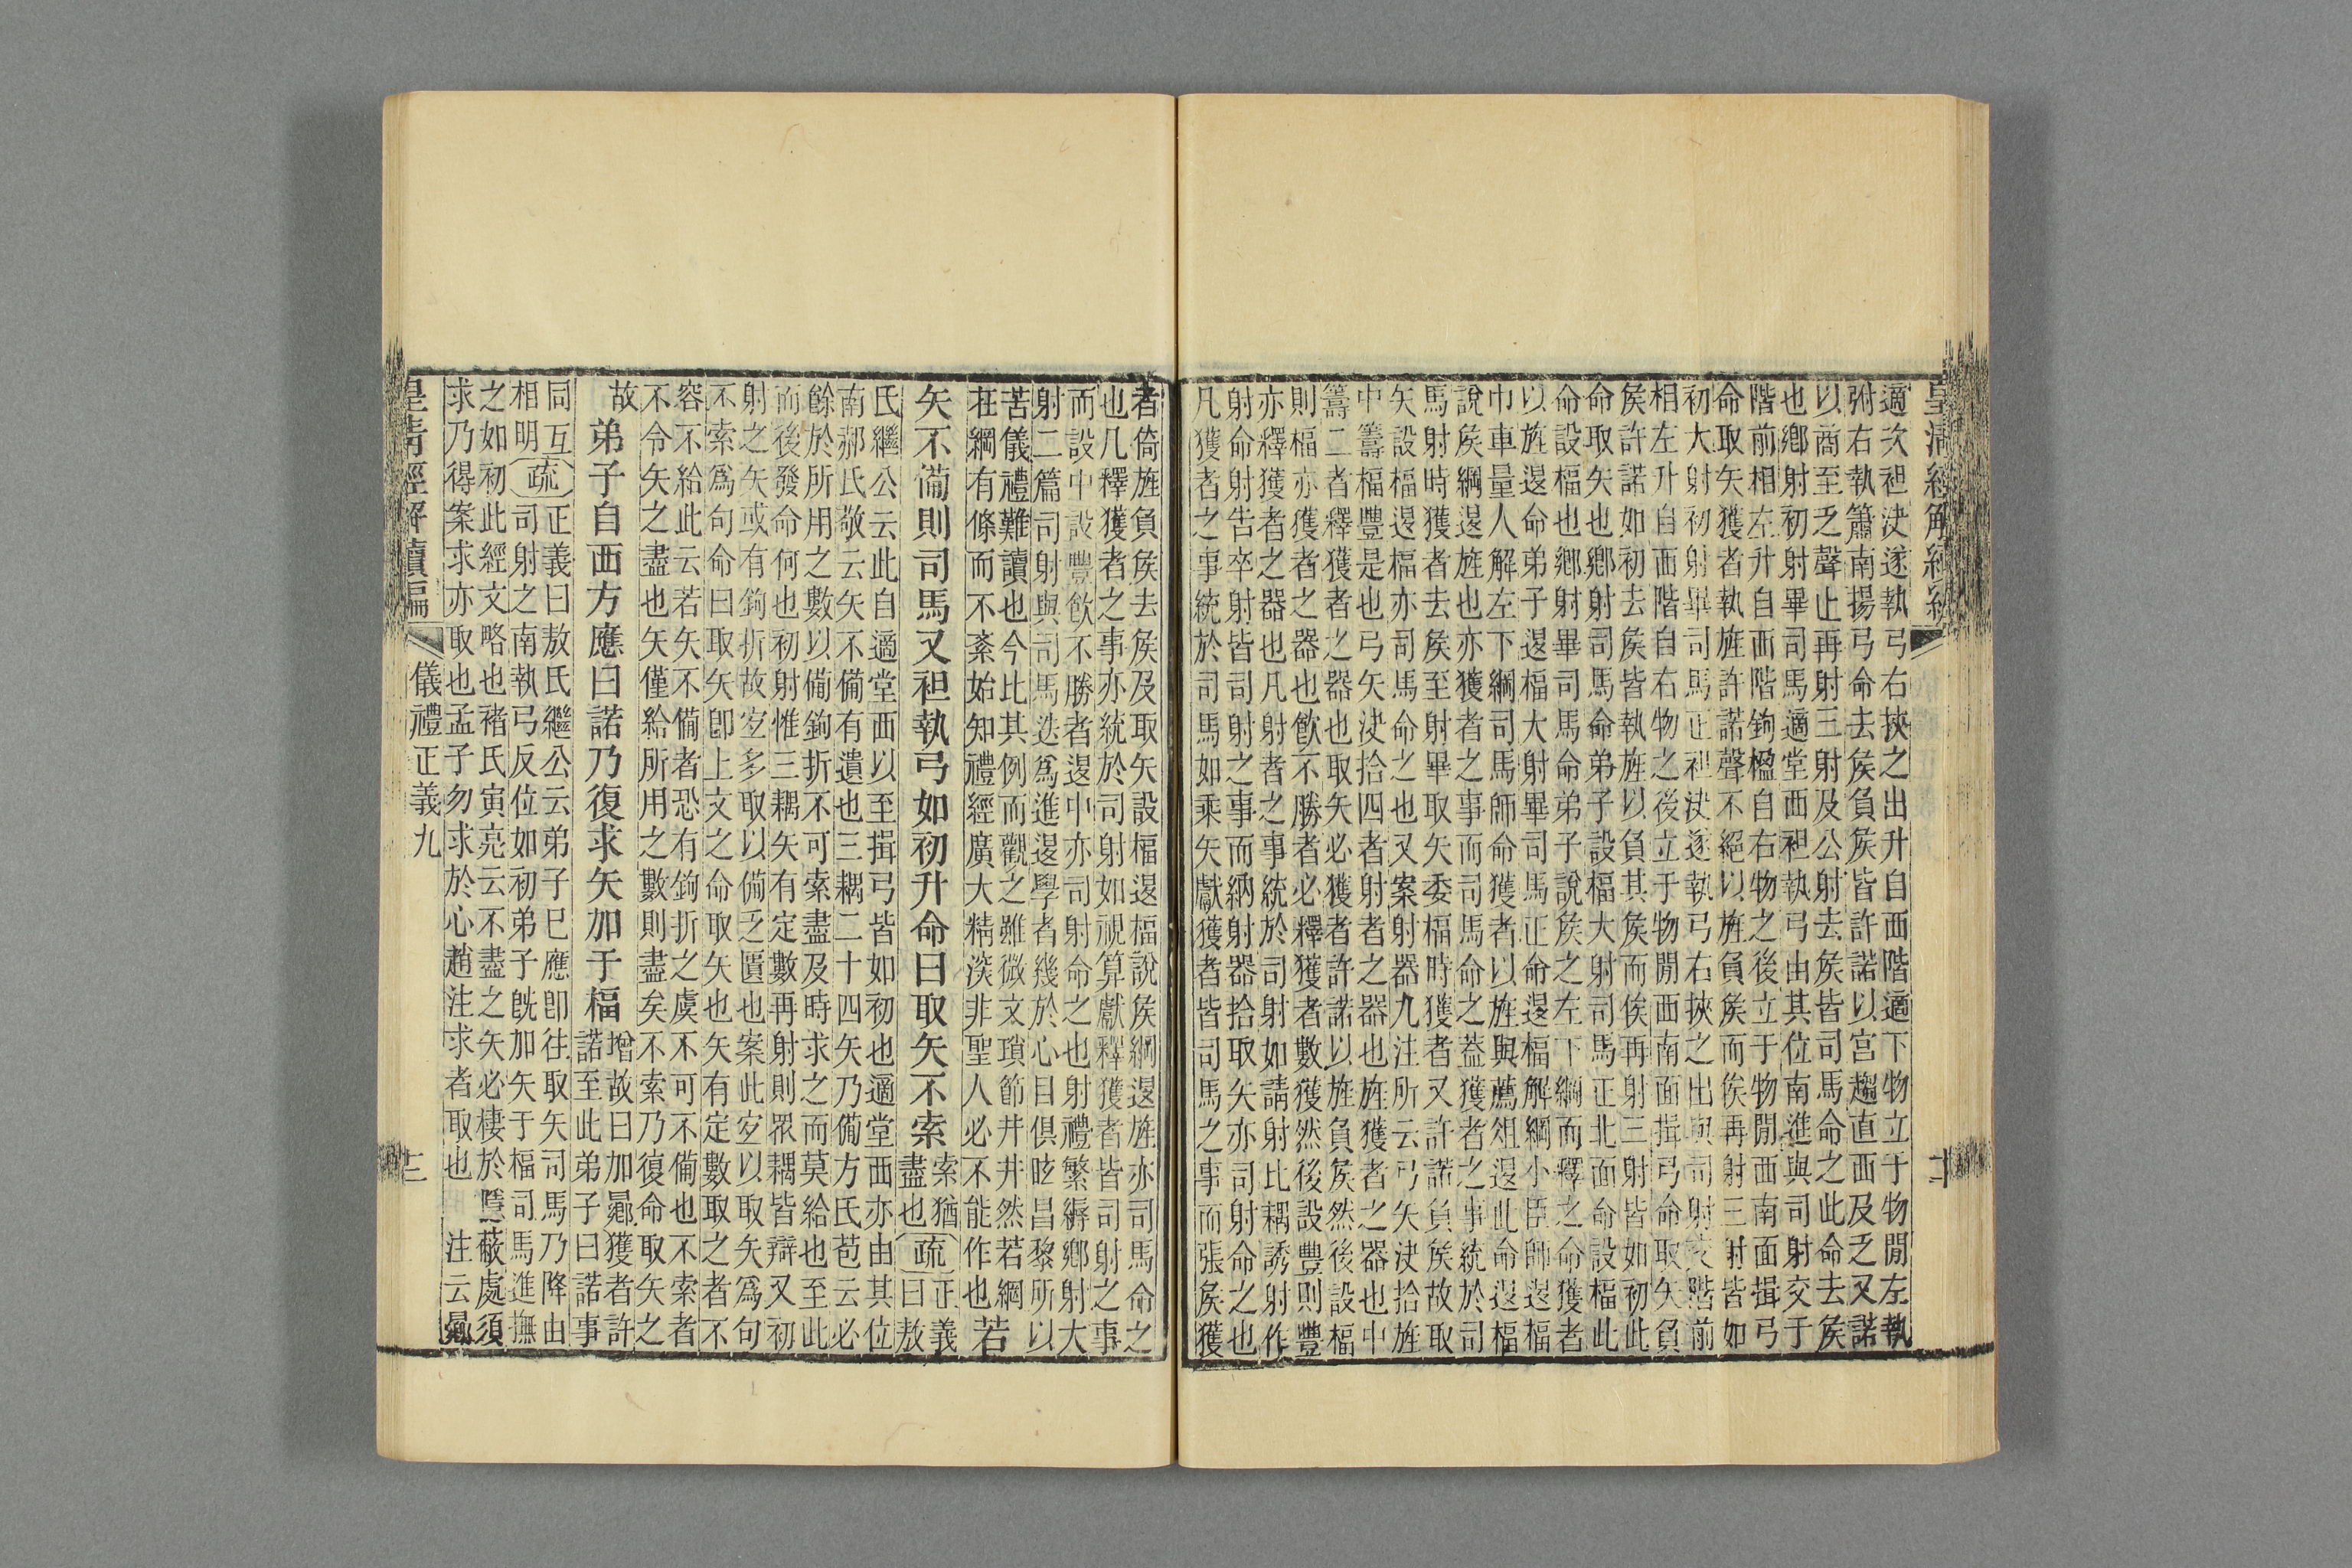 皇清經解續編
適次袒決遂執弓右挾之出升自西階適下物立于物閒左執
弣右執簫南揚弓命去矦負矦皆許諾以宮趨直西及乏又諾
以商至乏聲止再射三射及公射去矦皆司馬命之此命去矦
也鄉射初射畢司馬適堂西袒執弓由其位南進與司射交于
階前相左升自西階鉤楹自右物之後立于物閒西南面揖弓
命取矢獲者執旌許諾聲不絕以旌負矦而俟再射三射皆如
初大射初射畢司馬正袒決遂執弓右挾之出與司射交階前
相左升自西階自右物之後立于物閒西南面揖弓命取矢負
矦許諾如初去矦皆執旌以負其矦而俟再射三射皆如初此
命取矢也鄉射司馬命弟子設楅大射司馬正北面命設楅此
命設楅也鄉射畢司馬命弟子說矦之左下綱而釋之命獲者
以旌退命弟子退楅大射畢司馬正命退楅解綱小臣師退楅
巾車量人解左下綱司馬師命獲者以旌與薦俎退此命退楅
說矦綱退旌也亦獲者之事而司馬命之葢獲者之事統於司
馬射時獲者去矦至射畢取矢委楅時獲者又許諾負矦故取
矢設楅退楅亦司馬命之也又案射器九注所云弓矢決拾旌
中籌楅豐是也弓矢決拾四者射者之器也旌獲者之器也中
籌二者釋獲者之器也取矢必獲者許諾以旌負矦然後設楅
則楅亦獲者之器也飲不勝者必釋獲者數獲然後設豐則豐
亦釋獲者之器也凡射者之事統於司射如請射比耦誘射作
射命射告卒射皆司射之事而納射器拾取矢亦司射命之也
凡獲者之事統於司馬如乘矢獻獲者皆司馬之事而張矦獲
者倚旌負矦去矦及取矢設楅退楅說矦綱退旌亦司馬命之
也凡釋獲者之事亦統於司射如視算獻釋獲者皆司射之事
而設中設豐飲不勝者退中亦司射命之也射禮繁縟鄉射大
射二篇司射與司馬迭爲進退學者幾於心目俱眩昌黎所以
苦儀禮難讀也今比其例而觀之雖微文瑣節井井然若綱
在綱有條而不紊始知禮經廣大精深非聖人必不能作也若
矢不備則司馬又袒執弓如初升命曰取矢不索
索猶
盡也疏正義曰敖
氏繼公云此自適堂西以至揖弓皆如初也適堂西亦由其位
南郝氏敬云矢不備有遺也三耦二十四矢乃備方氏苞云必
餘於所用之數以備鉤折不可索盡及時求之而莫給也至此
而後發命何也初射惟三耦矢有定數再射則眾耦皆辯又初
射之矢或有鉤折故宐多取以備乏匱也案此宐以取矢爲句
不索爲句命曰取矢卽上文之命取矢也矢有定數取之者不
容不給此云若矢不備者恐有鉤折之虞不可不備也不索者
不令矢之盡也矢僅給所用之數則盡矣不索乃復命取矢之
故
弟子自西方應曰諾乃復求矢加于楅
增故曰加曏獲者許
諾至此弟子曰諾事
同互
相明疏正義曰敖氏繼公云弟子巳應卽往取矢司馬乃降由
司射之南執弓反位如初弟子旣加矢于楅司馬進撫
之如初此經文略也褚氏寅亮云不盡之矢必棲於隱蔽處須
求乃得案求亦取也孟子勿求於心趙注求者取也 注云曏
皇清經解續編 儀禮正義九